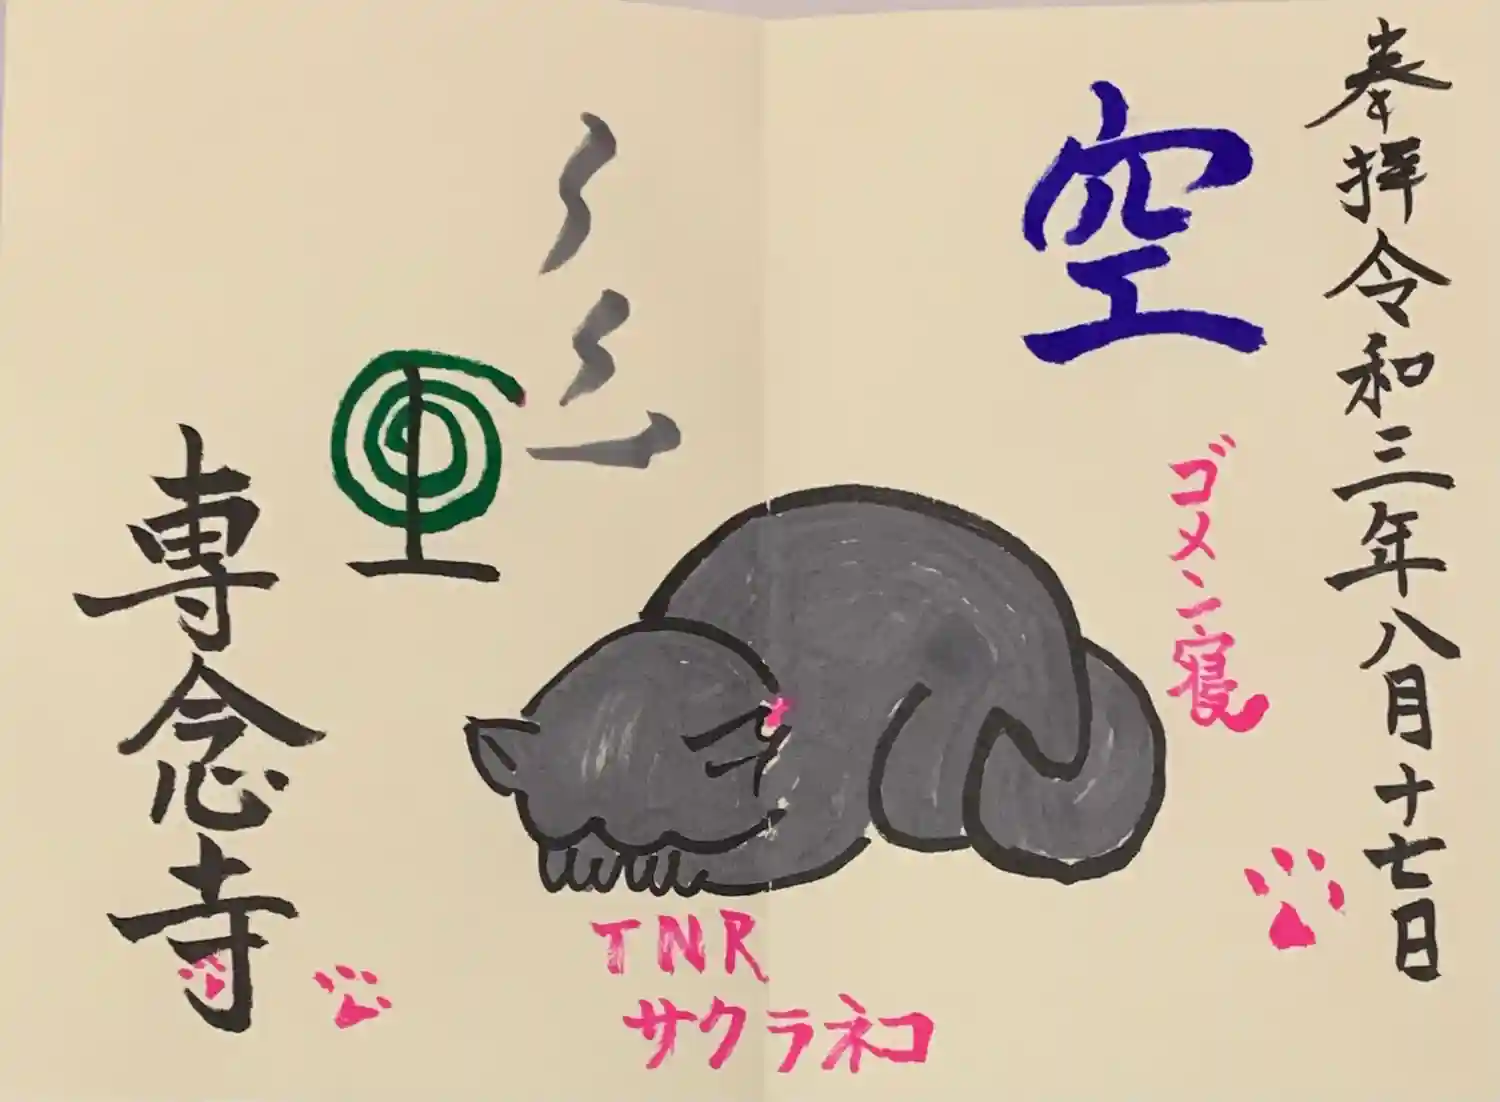 奉拝令和三年八月十七日
空
ゴメン寝
TNR
サクラネコ
専念寺